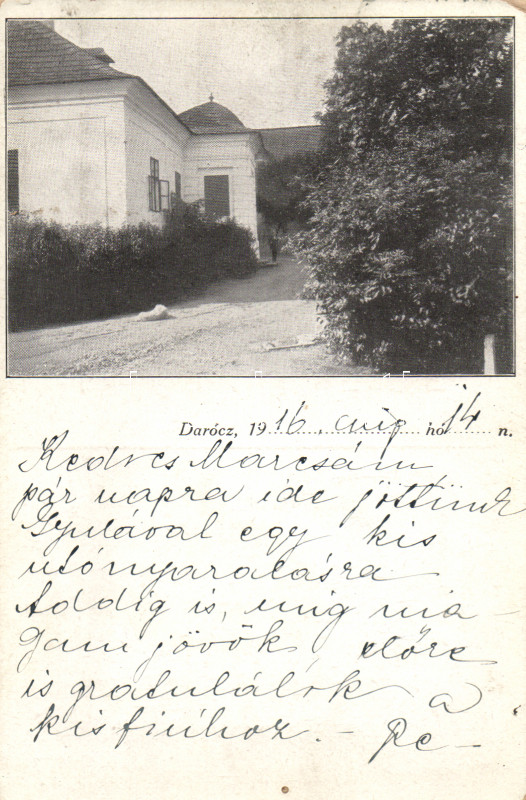 Darócz, 1916. aug. hó 14 n.
Kedves Marcsám,
pár napra ide jöttünk
Gyulával egy kis
utónyaralásra
Addig is, mig ma-
gam jövök, előre
is gratulálok a
kisfiúhoz. –